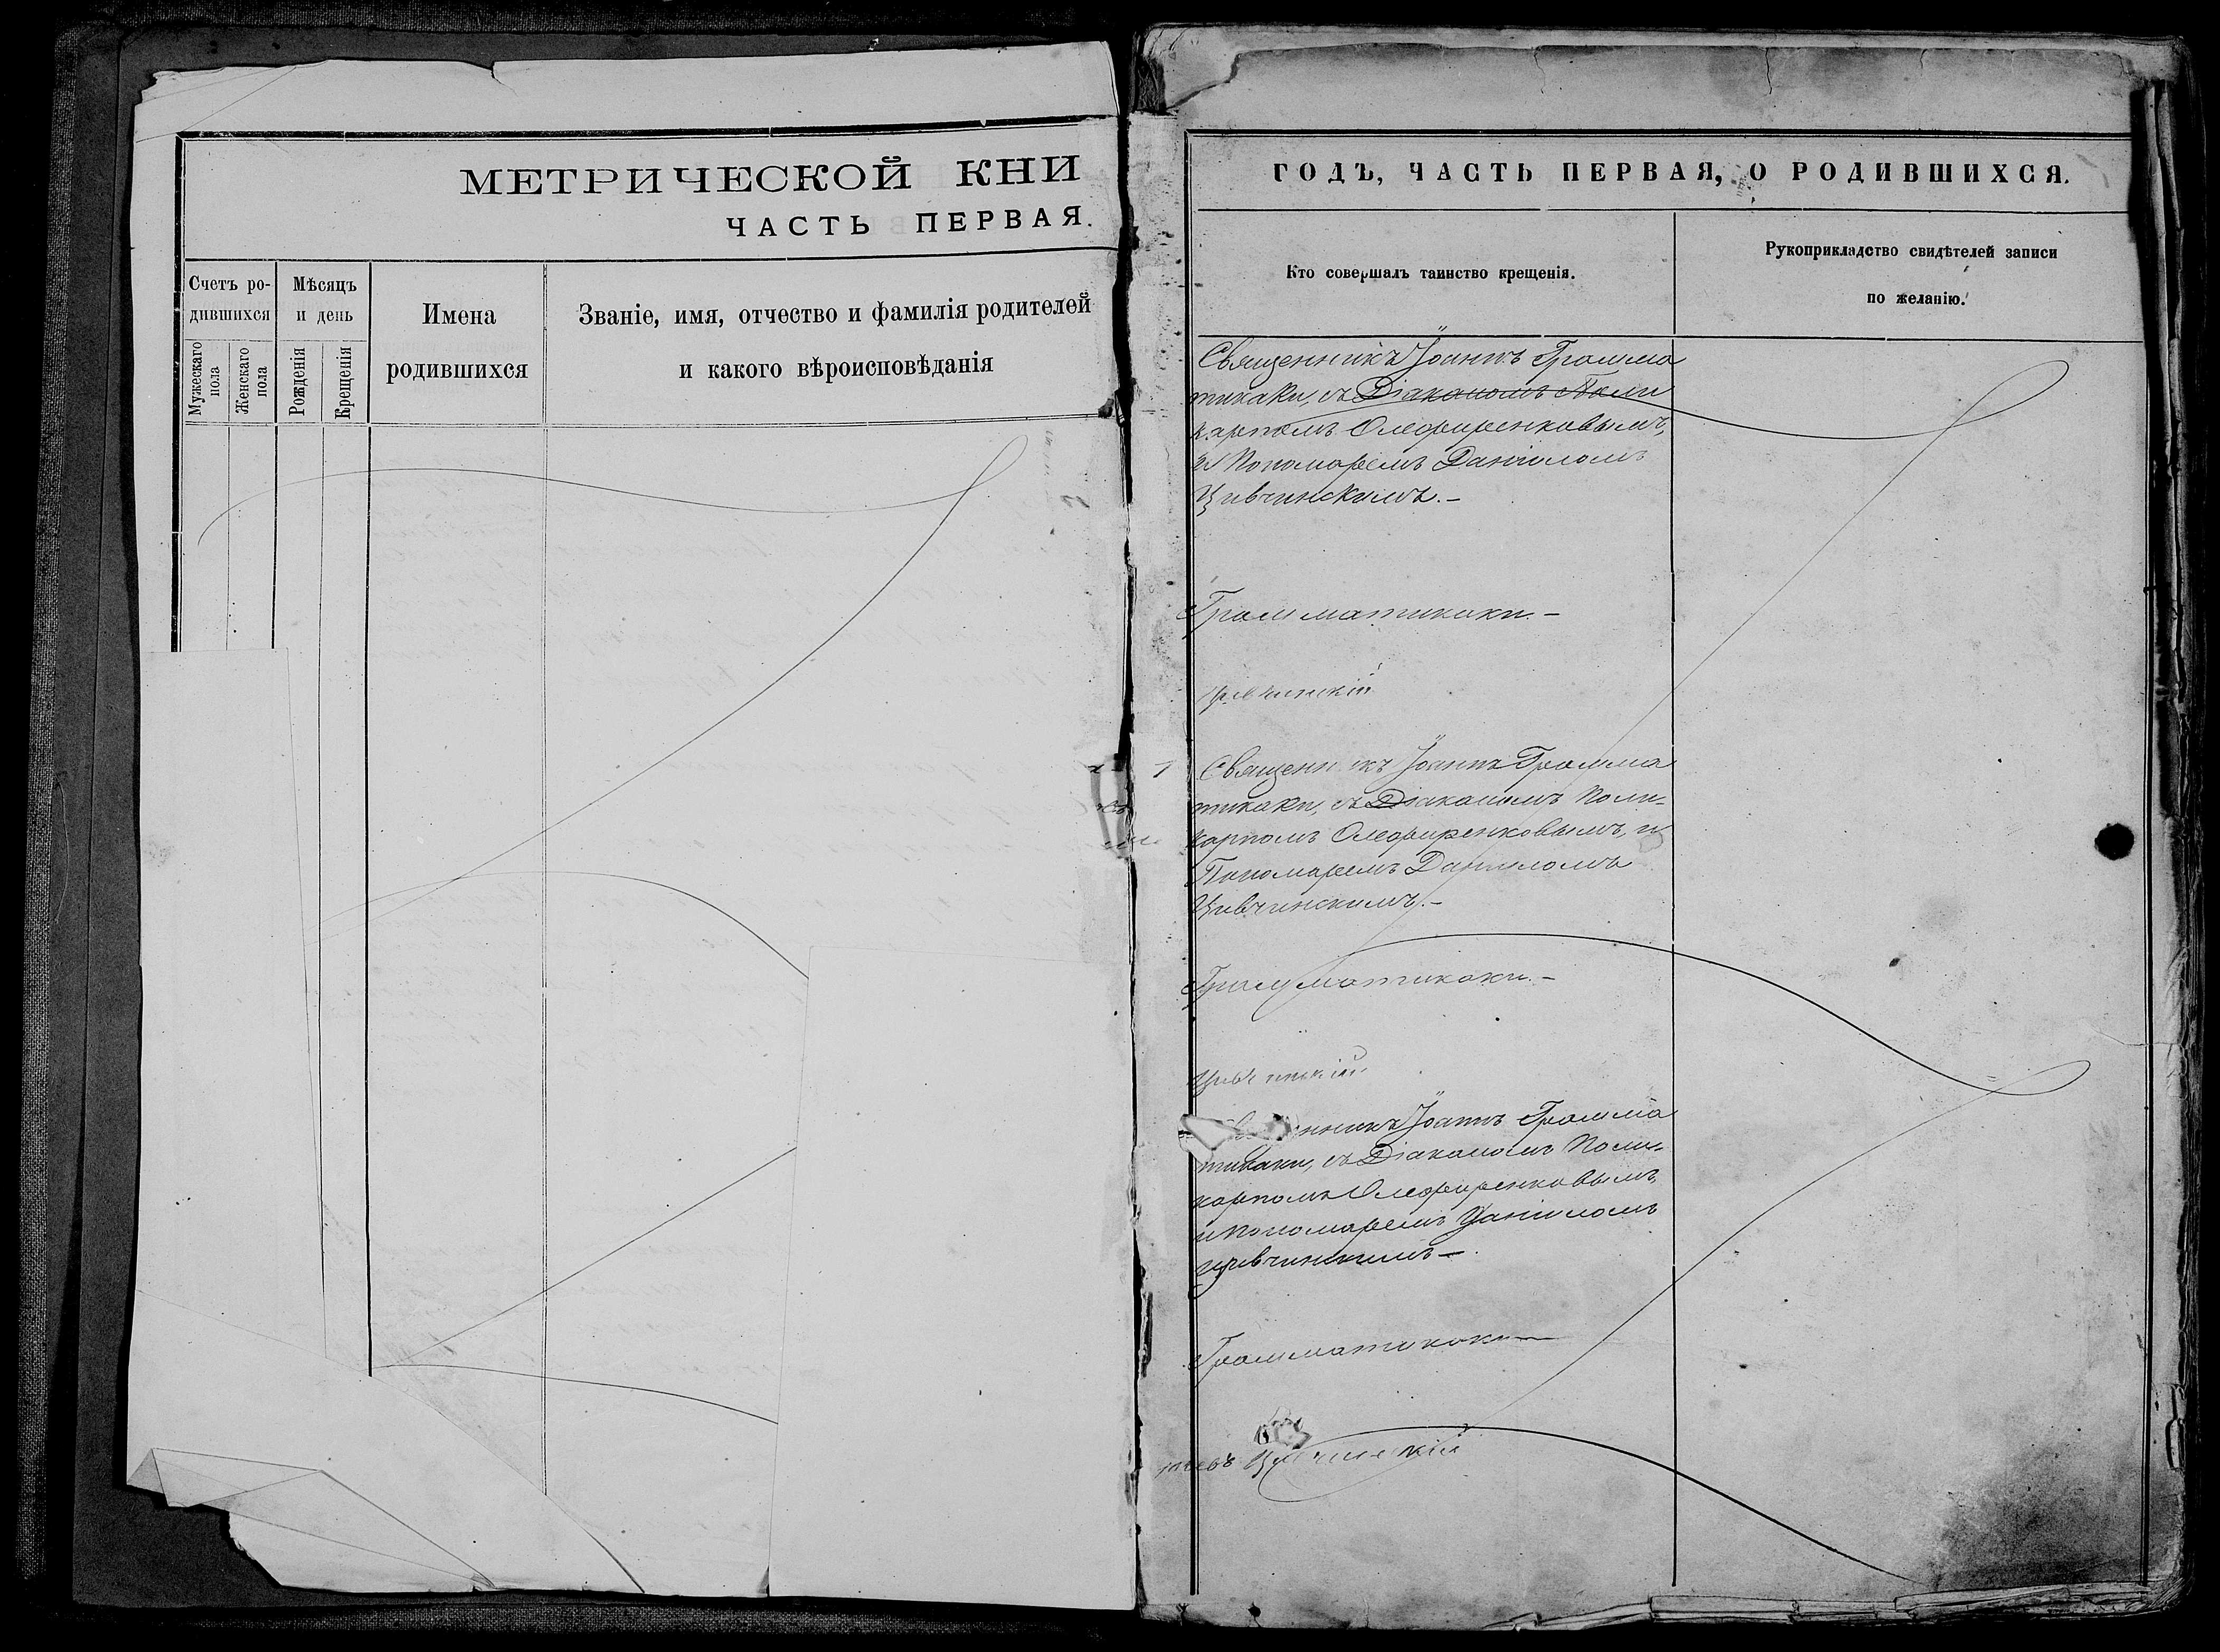 МЕТРИЧЕСКОЙ КНИ
ЧАСТЬ ПЕРВАЯ.
Счетъ ро-
дившихся
Мѣсяцъ
и день
Имена
родившихся
Званіе, имя, отчество и фамилія родителей
и какого вѣроисповѣданія
Мужескаго
пола
Женскаго
пола
Рожденія
Крещенія
ГОДЪ, ЧАСТЬ ПЕРВАЯ, О РОДИВШИХСЯ.
Кто совершалъ таинство крещенія.
Рукоприкладство свидѣтелей записи
по желанію.
Священникъ Іоаннъ Грамма
тикаки, съ Діакономъ Поли
карпомъ Олефиренковымъ,
и Пономаремъ Даніиломъ
Цивчинскимъ.-
Грамматикаки.-
Цивчинскій
Священникъ Іоаннъ Грамма
тикаки, съ Діакономъ Поли-
карпомъ Олефиренковымъ, и
Пономаремъ Даніиломъ
Цивчинскимъ.-
Грамматикаки.-
Цивчинскій
нникъ Іоаннъ Грамма
тикаки, съ Діакономъ Поли-
карпомъ Олефиренковымъ,
и Пономаремъ Даніиломъ
Цивчинскимъ-
Грамматикаки
Цивчинскій